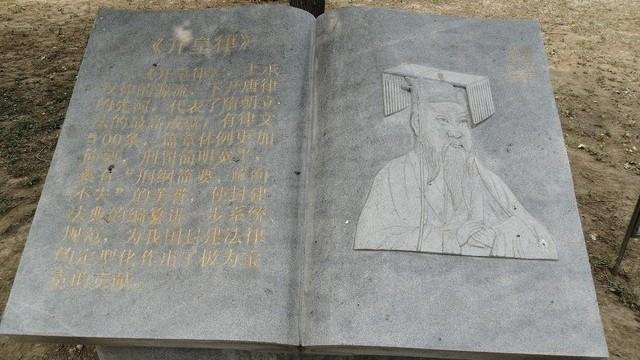 《开皇律》
《开皇律》上承
汉律的源流，下开唐律
的先河，代表了隋朝立
法的最高成就。有律文
500条，篇章体例更加
简明，刑罚简明宽平，
素有“刑纲简要，疏而
不失”的美誉，使封建
法典的编纂进一步系统、
规范，为我国封建法律
的定型化作出了极为宝
贵的贡献。